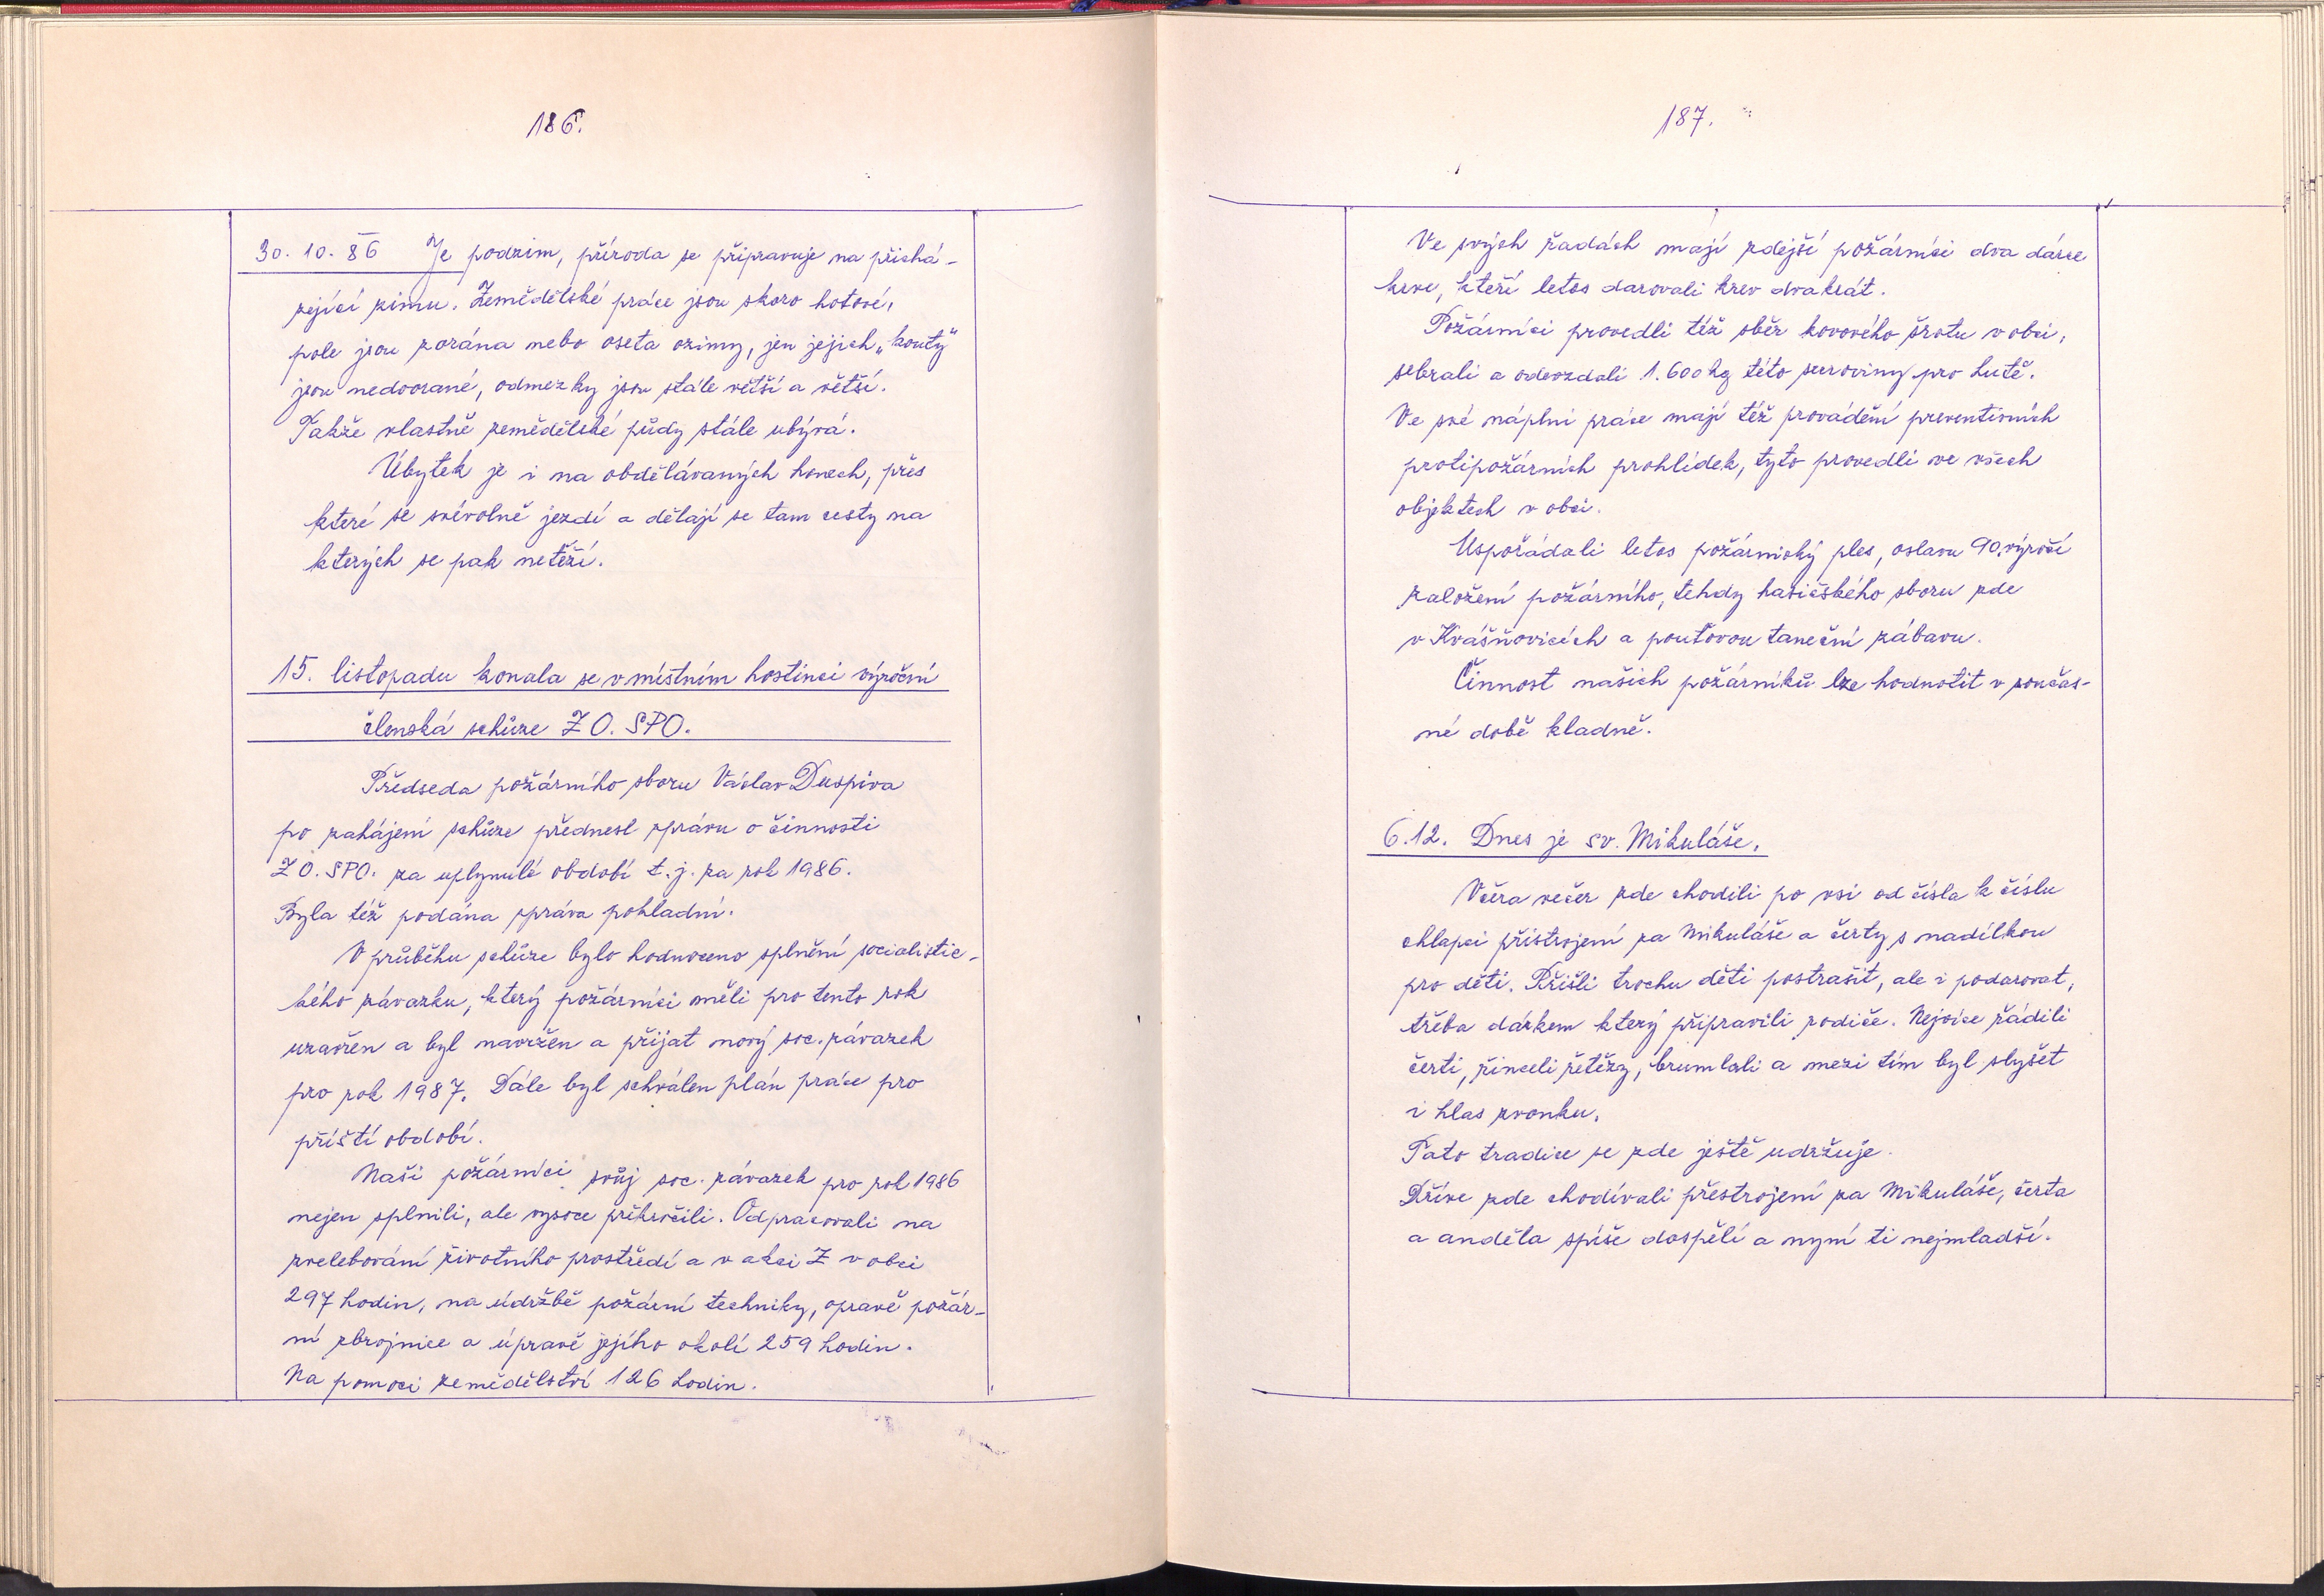 186.
30. 10. 86 Je podzim, příroda se připravuje na přichá-
zející zimu. Zemědělské práce jsou skoro hotové,
pole jsou zorána nebo oseta ozimy, jen jejich „kouty"
jsou nedoorané, odmezky jsou stále větší a větší.
Takže vlastně zemědělské půdy stále ubývá.
Úbytek je i na obdělávaných honech, přes
které se svévolně jezdí a dělají se tam cesty na
kterých se pak netěží.
15. listopadu konala se v místním hostinci výroční
členská schůze Z O. SPO.
Předseda požárního sboru Václav Duspiva
po zahájení schůze přednesl zprávu o činnosti
Z O. SPO. za uplynulé období t. j. za rok 1986.
Byla též podána zpráva pokladní.
V průběhu schůze bylo hodnoceno splnění socialistic-
kého závazku, který požárníci měli pro tento rok
uzavřen a byl navržen a přijat nový soc. závazek
pro rok 1987. Dále byl schválen plán práce pro
příští období.
Naši požárníci svůj soc. závazek pro rok 1986
nejen splnili, ale vysoce překročili. Odpracovali na
zvelebování životního prostředí a v akci Z v obci
297 hodin, na údržbě požární techniky, opravě požár-
ní zbrojnice a úpravě jejího okolí 259 hodin.
Na pomoci zemědělství 126 hodin.
187.
Ve svých řadách mají zdejší požárníci dva dárce
krve, kteří letos darovali krev dvakrát.
Požárníci provedli též sběr kovového šrotu v obci,
sebrali a odevzdali 1.600 kg této suroviny pro hutě.
Ve své náplni práce mají též provádění preventivních
protipožárních prohlídek, tyto provedli ve všech
objektech v obci.
Uspořádali letos požárnický ples, oslavu 90. výročí
založení požárního, tehdy hasičského sboru zde
v Kvášňovicích a pouťovou taneční zábavu.
Činnost našich požárníků lze hodnotit v součas-
né době kladně.
6.12. Dnes je sv. Mikuláše.
Včera večer zde chodili po vsi od čísla k číslu
chlapci přistrojení za Mikuláše a čerty s nadílkou
pro děti. Přišli trochu děti postrašit, ale i podarovat,
třeba dárkem který připravili rodiče. Nejvíce řádili
čerti, řinčeli řetězy, brumlali a mezi tím byl slyšet
i hlas zvonku.
Tato tradice se zde ještě udržuje.
Dříve zde chodívali přestrojení za Mikuláše, čerta
a anděla spíše dospělí a nyní ti nejmladší.